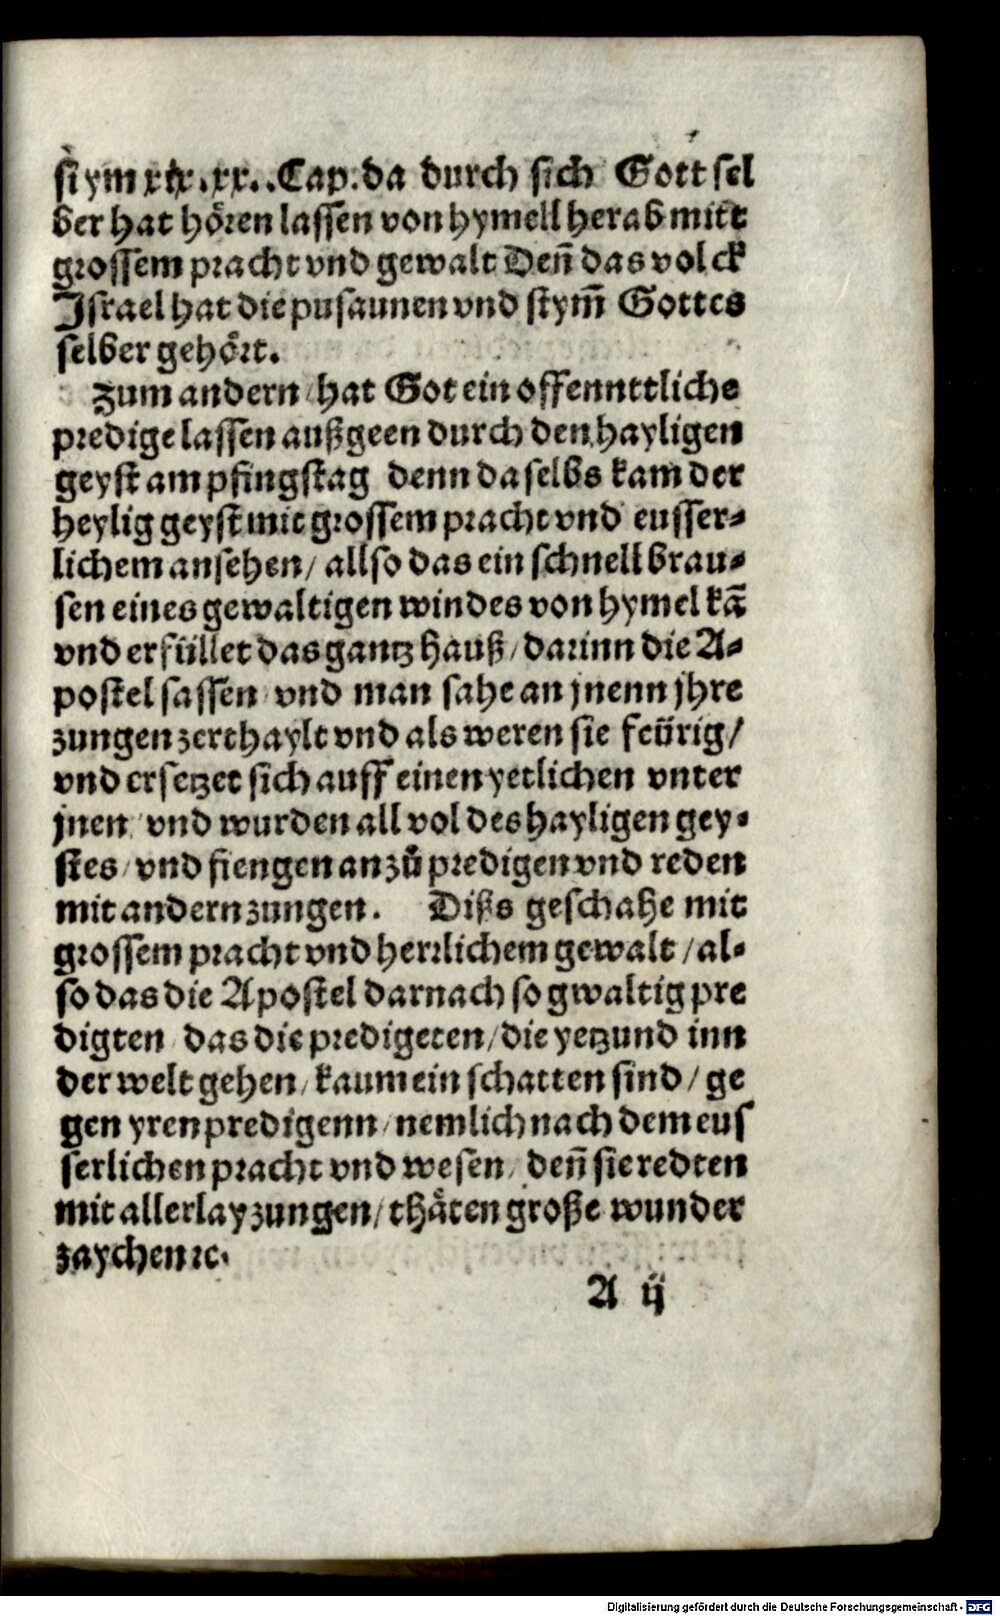 si ym xix. xx.. Cap. da durch sich Gott sel
ber hat hören lassen von hymell herab mitt
grossem pracht vnd gewalt Deñ das volck
Israel hat die pusaunen vnd stym̃ Gottes
selber gehört.
Zum andern / hat Got ein offennttliche
predige lassen außgeen durch den hayligen
geyst am pfingstag denn daselbs kam der
heylig geyst mit grossem pracht vnd eusser⸗
lichem ansehen / allso das ein schnell brau⸗
sen eines gewaltigen windes von hymel kã
vnd erfüllet das gantz hauß / darinn die A⸗
postel sassen / vnd man sahe an jnenn jhre
zungen zerthaylt vnd als weren sie feürig /
vnd er setzet sich auff einen yetlichen vnter
jnen / vnd wurden all vol des hayligen gey⸗
stes / vnd fiengen an zů predigen vnd reden
mit andern zungen. Diß geschahe mit
grossem pracht vnd herrlichem gewalt / al⸗
so das die Apostel darnach so gwaltig pre
digten / das die predigeten / die yetzund inn
der welt gehen / kaum ein schatten sind / ge
gen yren predigenn / nemlich nach dem eus
serlichen pracht vnd wesen / deñ sie redten
mit allerlay zungen / thåten große wunder
zaychen ꝛc.
A ij
Digitalisierung gefördert durch die Deutsche Forschungsgemeinschaft - DFG